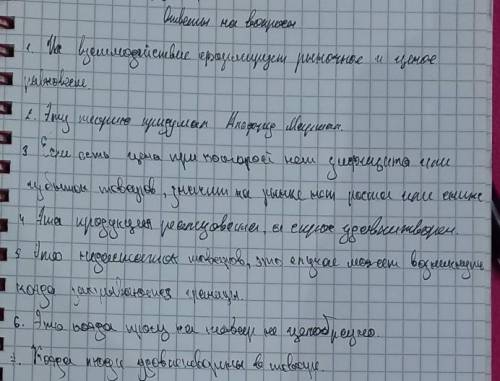 Ответы на вопросы
1. Их взаимодействие формирует рыночное и ценое
равновесие.
2. Эту теорию придумал Альфред Маршал.
3 Если есть цена при которой нет дефицита или
избытка товаров, значит на рынке нет роста или
4 Эта продукция реализована, а спрос удовлетворен.
5 Это недостаток товаров, это случае может возникнуть
когда закрываются границы.
6. Это когда цену на товар не целообразно.
7. Когда люди удовлетворены в товаре.